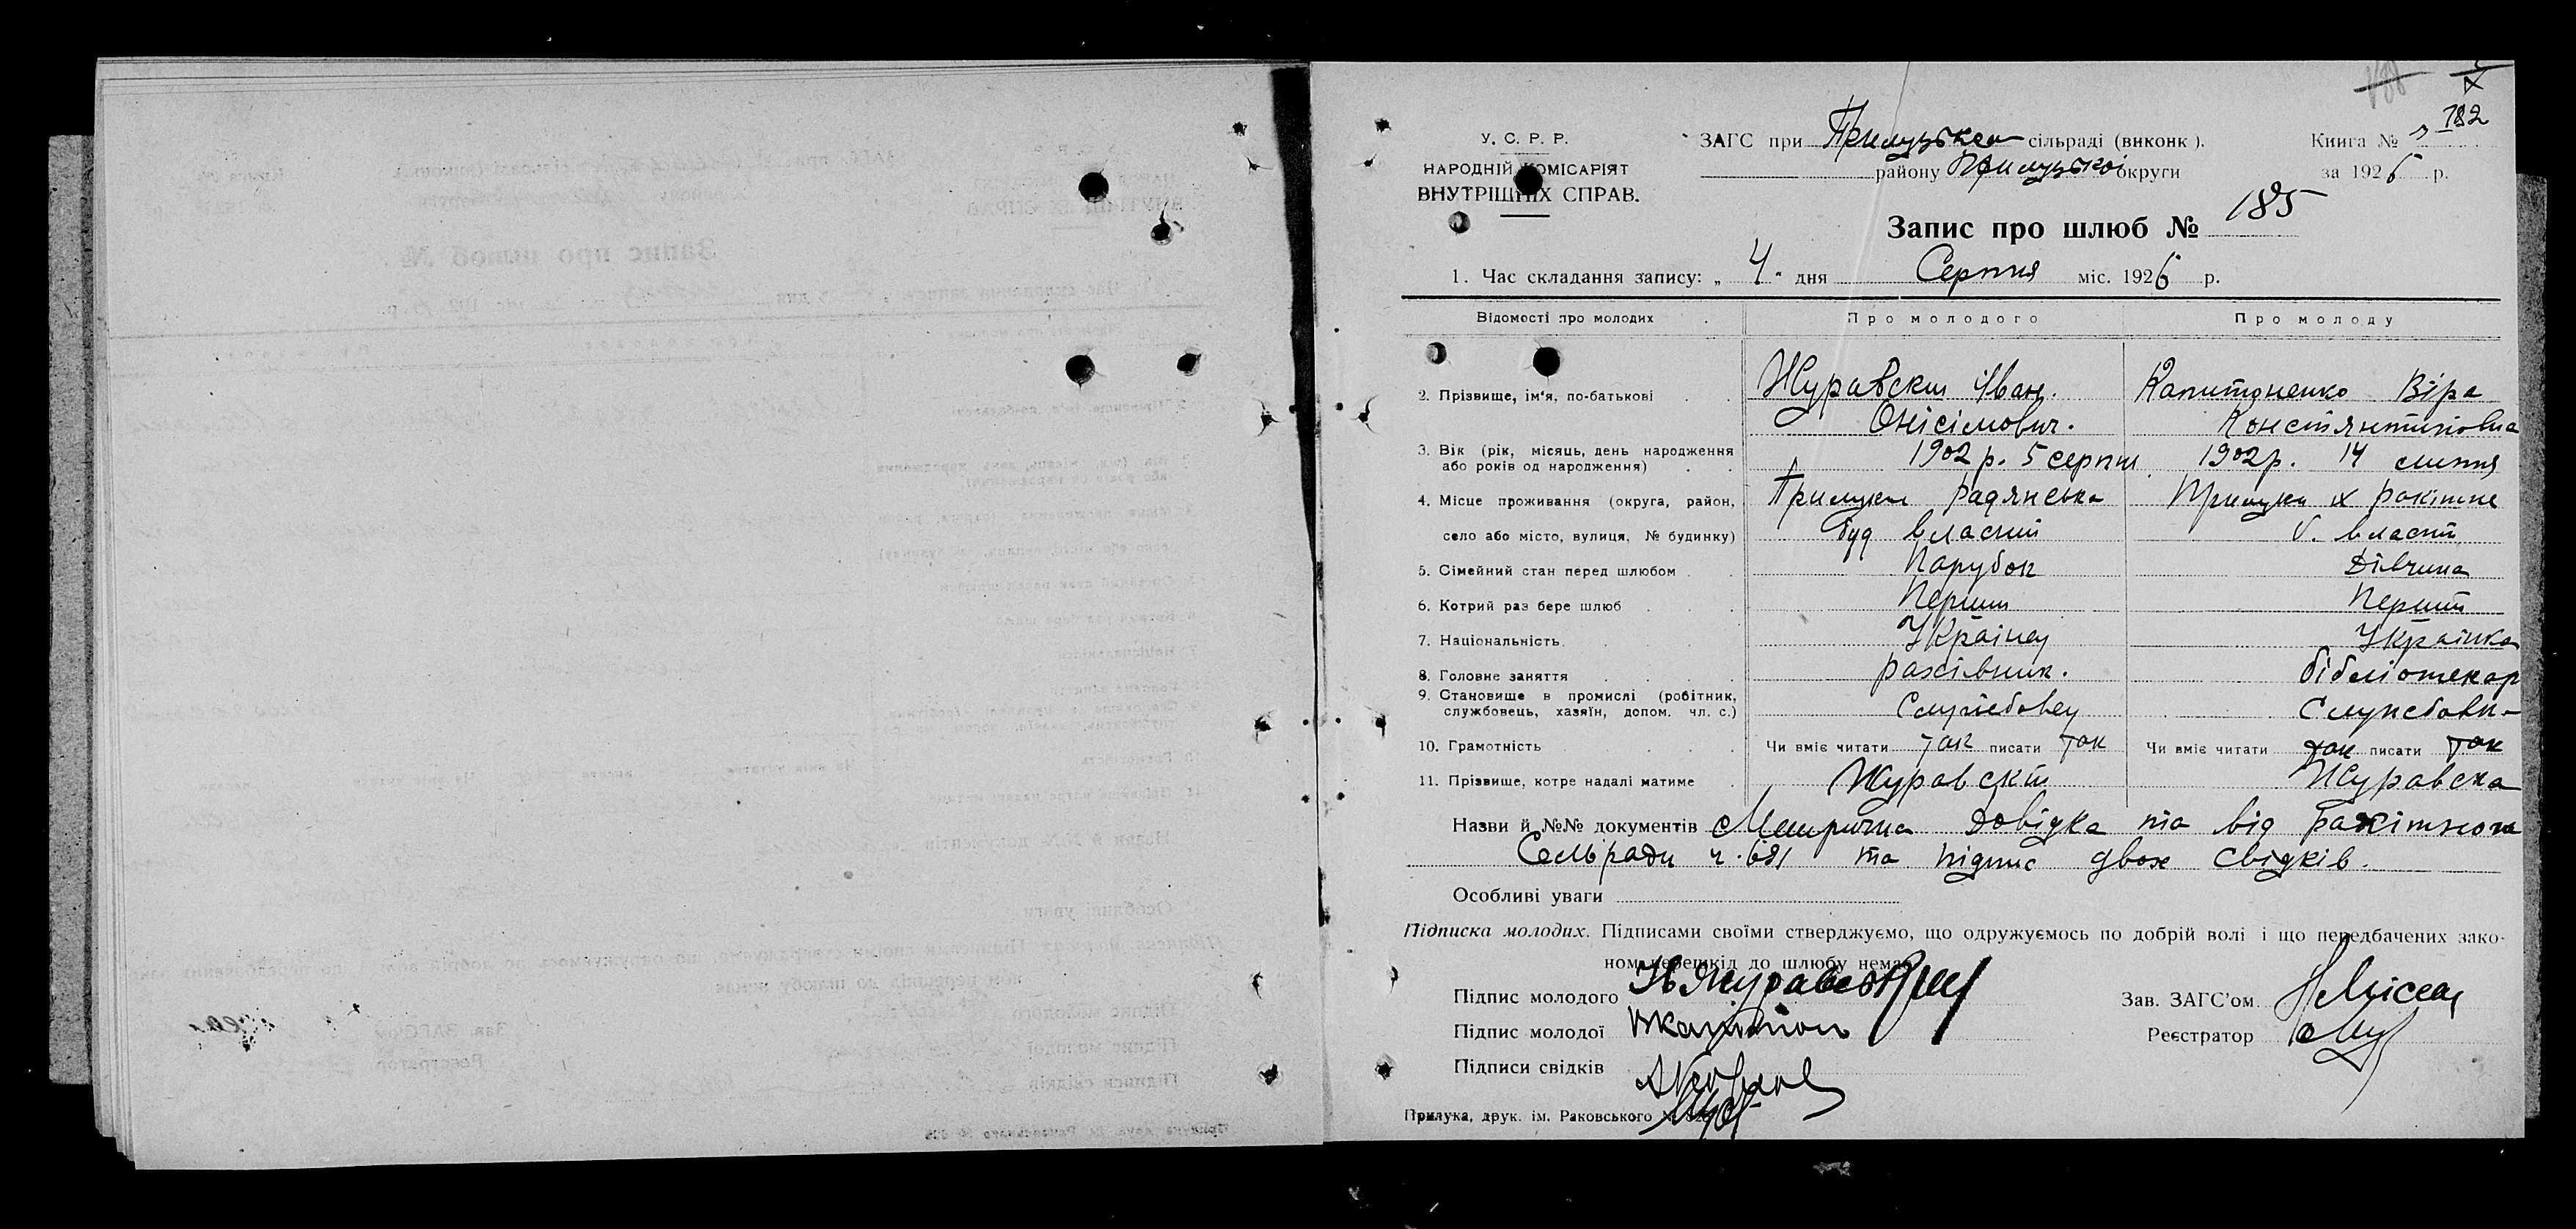 182
У. С. Р. Р.
НАРОДНІЙ КОМІСАРІЯТ
ВНУТРІШНІХ СПРАВ.
ЗАГС при Прилуцьком сільраді (виконк).
району Прилуцької округи
Книга №
за 1926 р.
Запис про шлюб № 185
1. Час складання запису: „ 4 " дня Серпня міс. 1926 р.
Відомості про молодих
Про молодого
Про молоду
2. Прізвище, ім'я, по-батькові
Журавский Іван
Онісімович.
Капитоненко Віра
Констянтиновна
3. Вік (рік, місяць, день народження
або років од народження)
1902 р. 5 серпня
1902 р. 14 липня
4. Місце проживання (округа, район,
село або місто, вулиця, № будинку)
Прилуки радянська
буд власний
Прилуки
власний
5. Сімейний стан перед шлюбом
Парубок
Дівчина
6. Котрий раз бере шлюб
Перший
Перший
7. Національність
Українец
Українка
8. Головне заняття
рахівник.
бібліотекар
9. Становище в промислі (робітник,
службовець, хазяїн, допом. чл. с.)
Службовец
Службов
10. Грамотність
Чи вміє читати так писати так
Чи вміє читати так писати так
11. Прізвище, котре надалі матиме
Журавскій
Журавска
Назви й №№ документів Метрична Довідка та від
Сельради ч. та підпис двох свідків.
Особливі уваги
Підписка молодих. Підписами своїми стверджуємо, що одружуємось по добрій волі і що передбачених зако-
ном перешкід до шлюбу немає
Підпис молодого
Підпис молодої
Підписи свідків
Зав. ЗАГС'ом
Реєстратор
Прилука, друк. ім. Раковського №